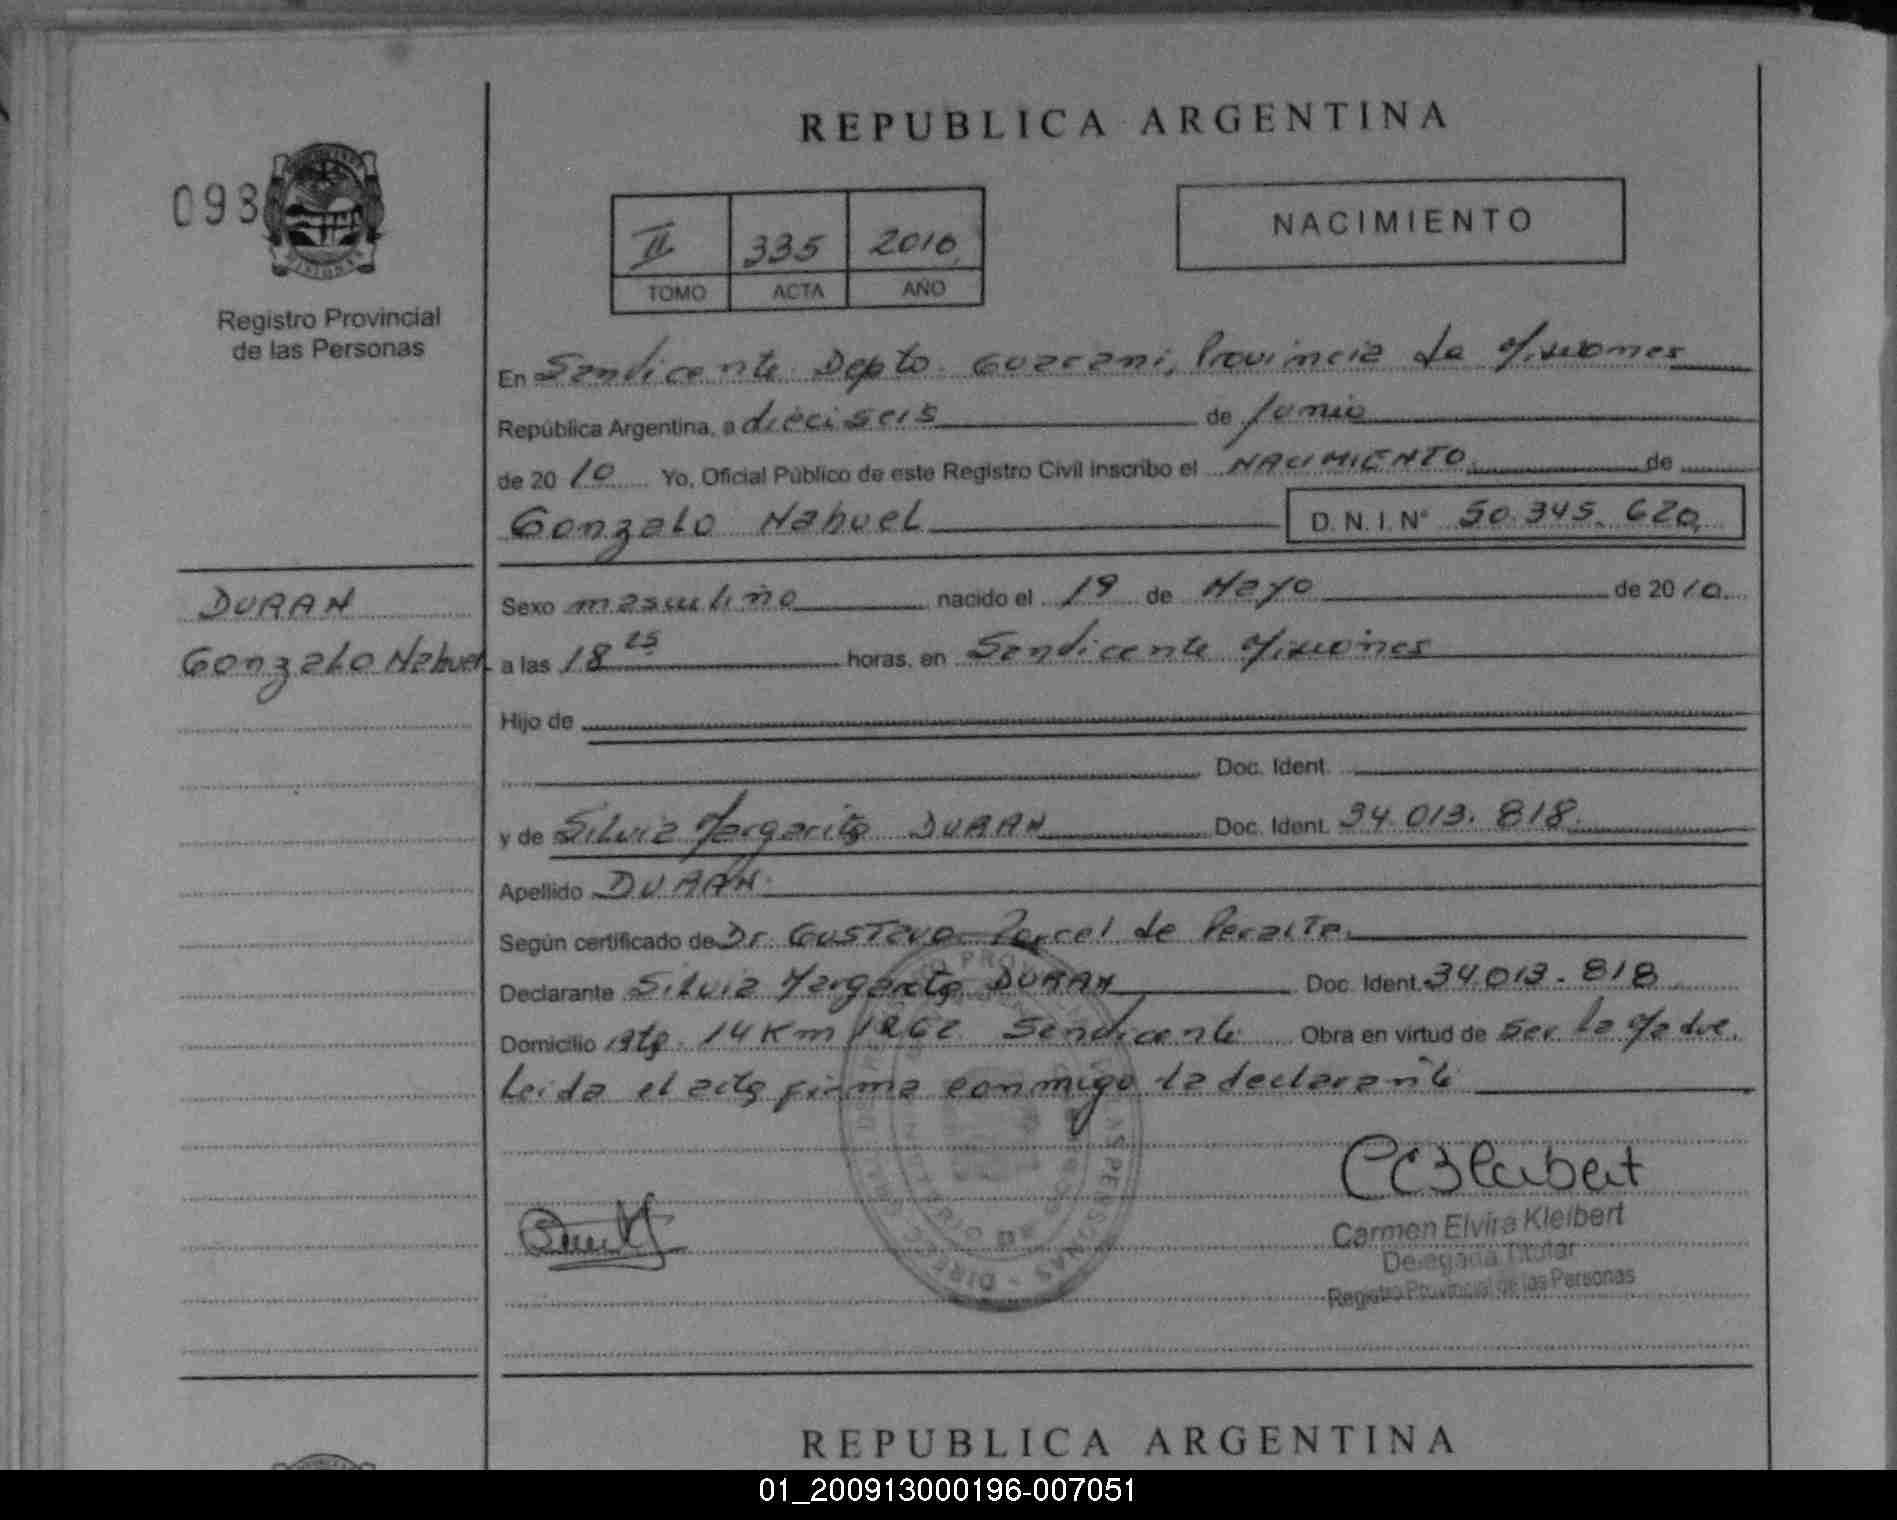 REPUBLICA ARGENTINA
093
Registro Provincial
de las Personas
II 335 2010
TOMO ACTA AÑO
NACIMIENTO
En Sanvicente Depto. Guarani, Provincia de Misiones
República Argentina, a dieciseis de Junio
de 20 10 Yo, Oficial Público de este Registro Civil inscribo el NACIMIENTO de
Gonzalo Nahuel D. N. I. N° 50.345.620
DURAN
Gonzalo Nahuel
Sexo masculino nacido el 19 de Mayo de 20 10
a las 18 25 horas, en Sanvicente Misiones
Hijo de
Doc. Ident.
y de Silvia Margarita DURAN Doc. Ident. 34.013.818
Apellido DURAN
Según certificado de Dr. Gustavo Porcel de Peralta
Declarante Silvia Margarita DURAN Doc. Ident. 34.013.818
Domicilio 14 Km 1262 Sanvicente Obra en virtud de ser la Madre.
Leida el acta firma conmigo la declarante
CEKleibert
Carmen Elvira Kleibert
Delegada Titular
Registro Provincial de las Personas
REPUBLICA ARGENTINA
01_200913000196-007051